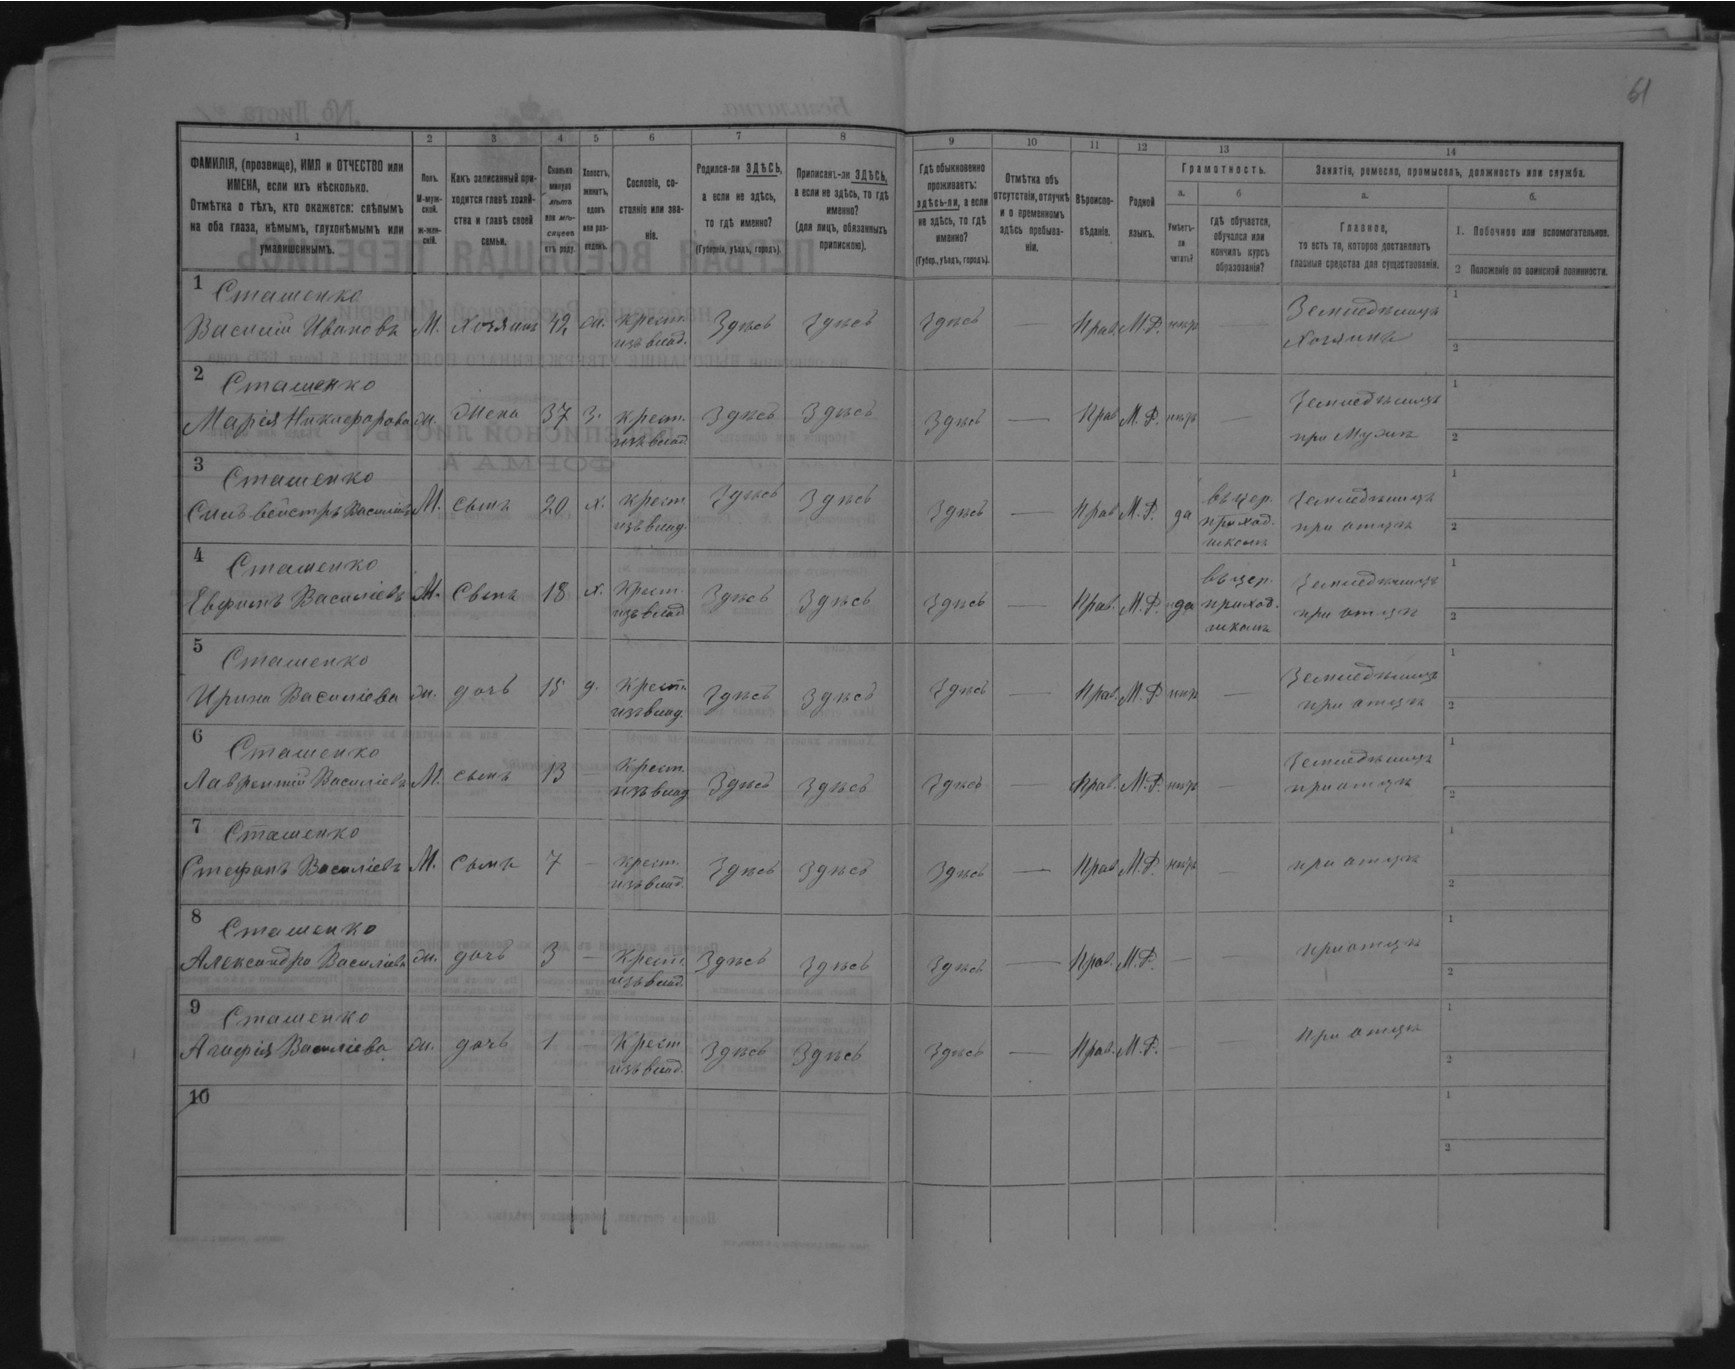 61
1 2 3 4 5 6 7 8 9 10 11 12 13 14
ФАМИЛІЯ, (прозвище), ИМЯ и ОТЧЕСТВО или ИМЕНА, если ихъ нѣсколько.
Отмѣтка о тѣхъ, кто окажется: слѣпымъ на оба глаза, нѣмымъ, глухонѣмымъ или умалишеннымъ.
Полъ.
М-мужской.
ж-женскій.
Какъ записанный приходится главѣ хозяйства и главѣ своей семьи.
Сколько минуло лѣтъ или мѣсяцевъ отъ роду.
Холостъ, женатъ, вдовъ или разведенъ.
Сословіе, состояніе или званіе.
Родился-ли ЗДѢСЬ, а если не здѣсь, то гдѣ именно?
(Губернія, уѣздъ, городъ).
Приписанъ-ли ЗДѢСЬ, а если не здѣсь, то гдѣ именно?
(для лицъ, обязанныхъ припискою).
Гдѣ обыкновенно проживаетъ: здѣсь-ли, а если не здѣсь, то гдѣ именно?
(Губер., уѣздъ, городъ).
Отмѣтка объ отсутствіи, отлучкѣ и о временномъ здѣсь пребываніи.
Вѣроисповѣданіе.
Родной языкъ.
Грамотность.
а.
Умѣетъ-ли читать?
б
гдѣ обучается, обучался или кончилъ курсъ образованія?
Занятіе, ремесло, промыселъ, должность или служба.
а.
Главное,
то есть то, которое доставляетъ главныя средства для существованія.
б.
1. Побочное или вспомогательное.
2 Положеніе по воинской повинности.
1 Сташенко
Василій Ивановъ М. хозяинъ 42 ж. крест. изъ влад. Здѣсь Здѣсь Здѣсь — Прав. М.Р. нѣтъ — Земледѣлецъ Хозяинъ 1 2
2 Сташенко
Марія Никифорова ж. жена 37 з. крест. изъ влад. Здѣсь Здѣсь Здѣсь — Прав М.Р. нѣтъ — Земледѣлецъ при мужѣ 1 2
3 Сташенко
Сильвестръ Василіевъ М. сынъ 20 х. крест. изъ влад. Здѣсь Здѣсь Здѣсь — Прав М.Р. да въ цер. приход. школѣ Земледѣлецъ при отцѣ 1 2
4 Сташенко
Евфимъ Василіевъ М. Сынъ 18 х. Крест. изъ влад Здѣсь Здѣсь Здѣсь — Прав. М.Р. да въ цер. приход. школѣ Земледѣлецъ при отцѣ 1 2
5 Сташенко
Ирина Василіева ж. дочь 15 д. Крест. изъ влад. Здѣсь Здѣсь Здѣсь — Прав. М.Р нѣтъ — Земледѣлецъ при отцѣ 1 2
6 Сташенко
Лаврентій Василіевъ М. сынъ 13 — Крест. изъ влад Здѣсь Здѣсь Здѣсь — Прав. М.Р. нѣтъ — Земледѣлецъ при отцѣ 1 2
7 Сташенко
Стефанъ Василіевъ М. Сынъ 7 — крест. изъ влад. Здѣсь Здѣсь Здѣсь — Прав М.Р. нѣтъ — при отцѣ 1 2
8 Сташенко
Александра Василіева ж. дочь 3 — Крест. изъ влад. Здѣсь Здѣсь Здѣсь — Прав. М.Р. — — при отцѣ 1 2
9 Сташенко
Агафія Василіева ж. дочь 1 — Крест изъ влад. Здѣсь Здѣсь Здѣсь — Прав. М.Р. — — При отцѣ 1 2
10 1 2